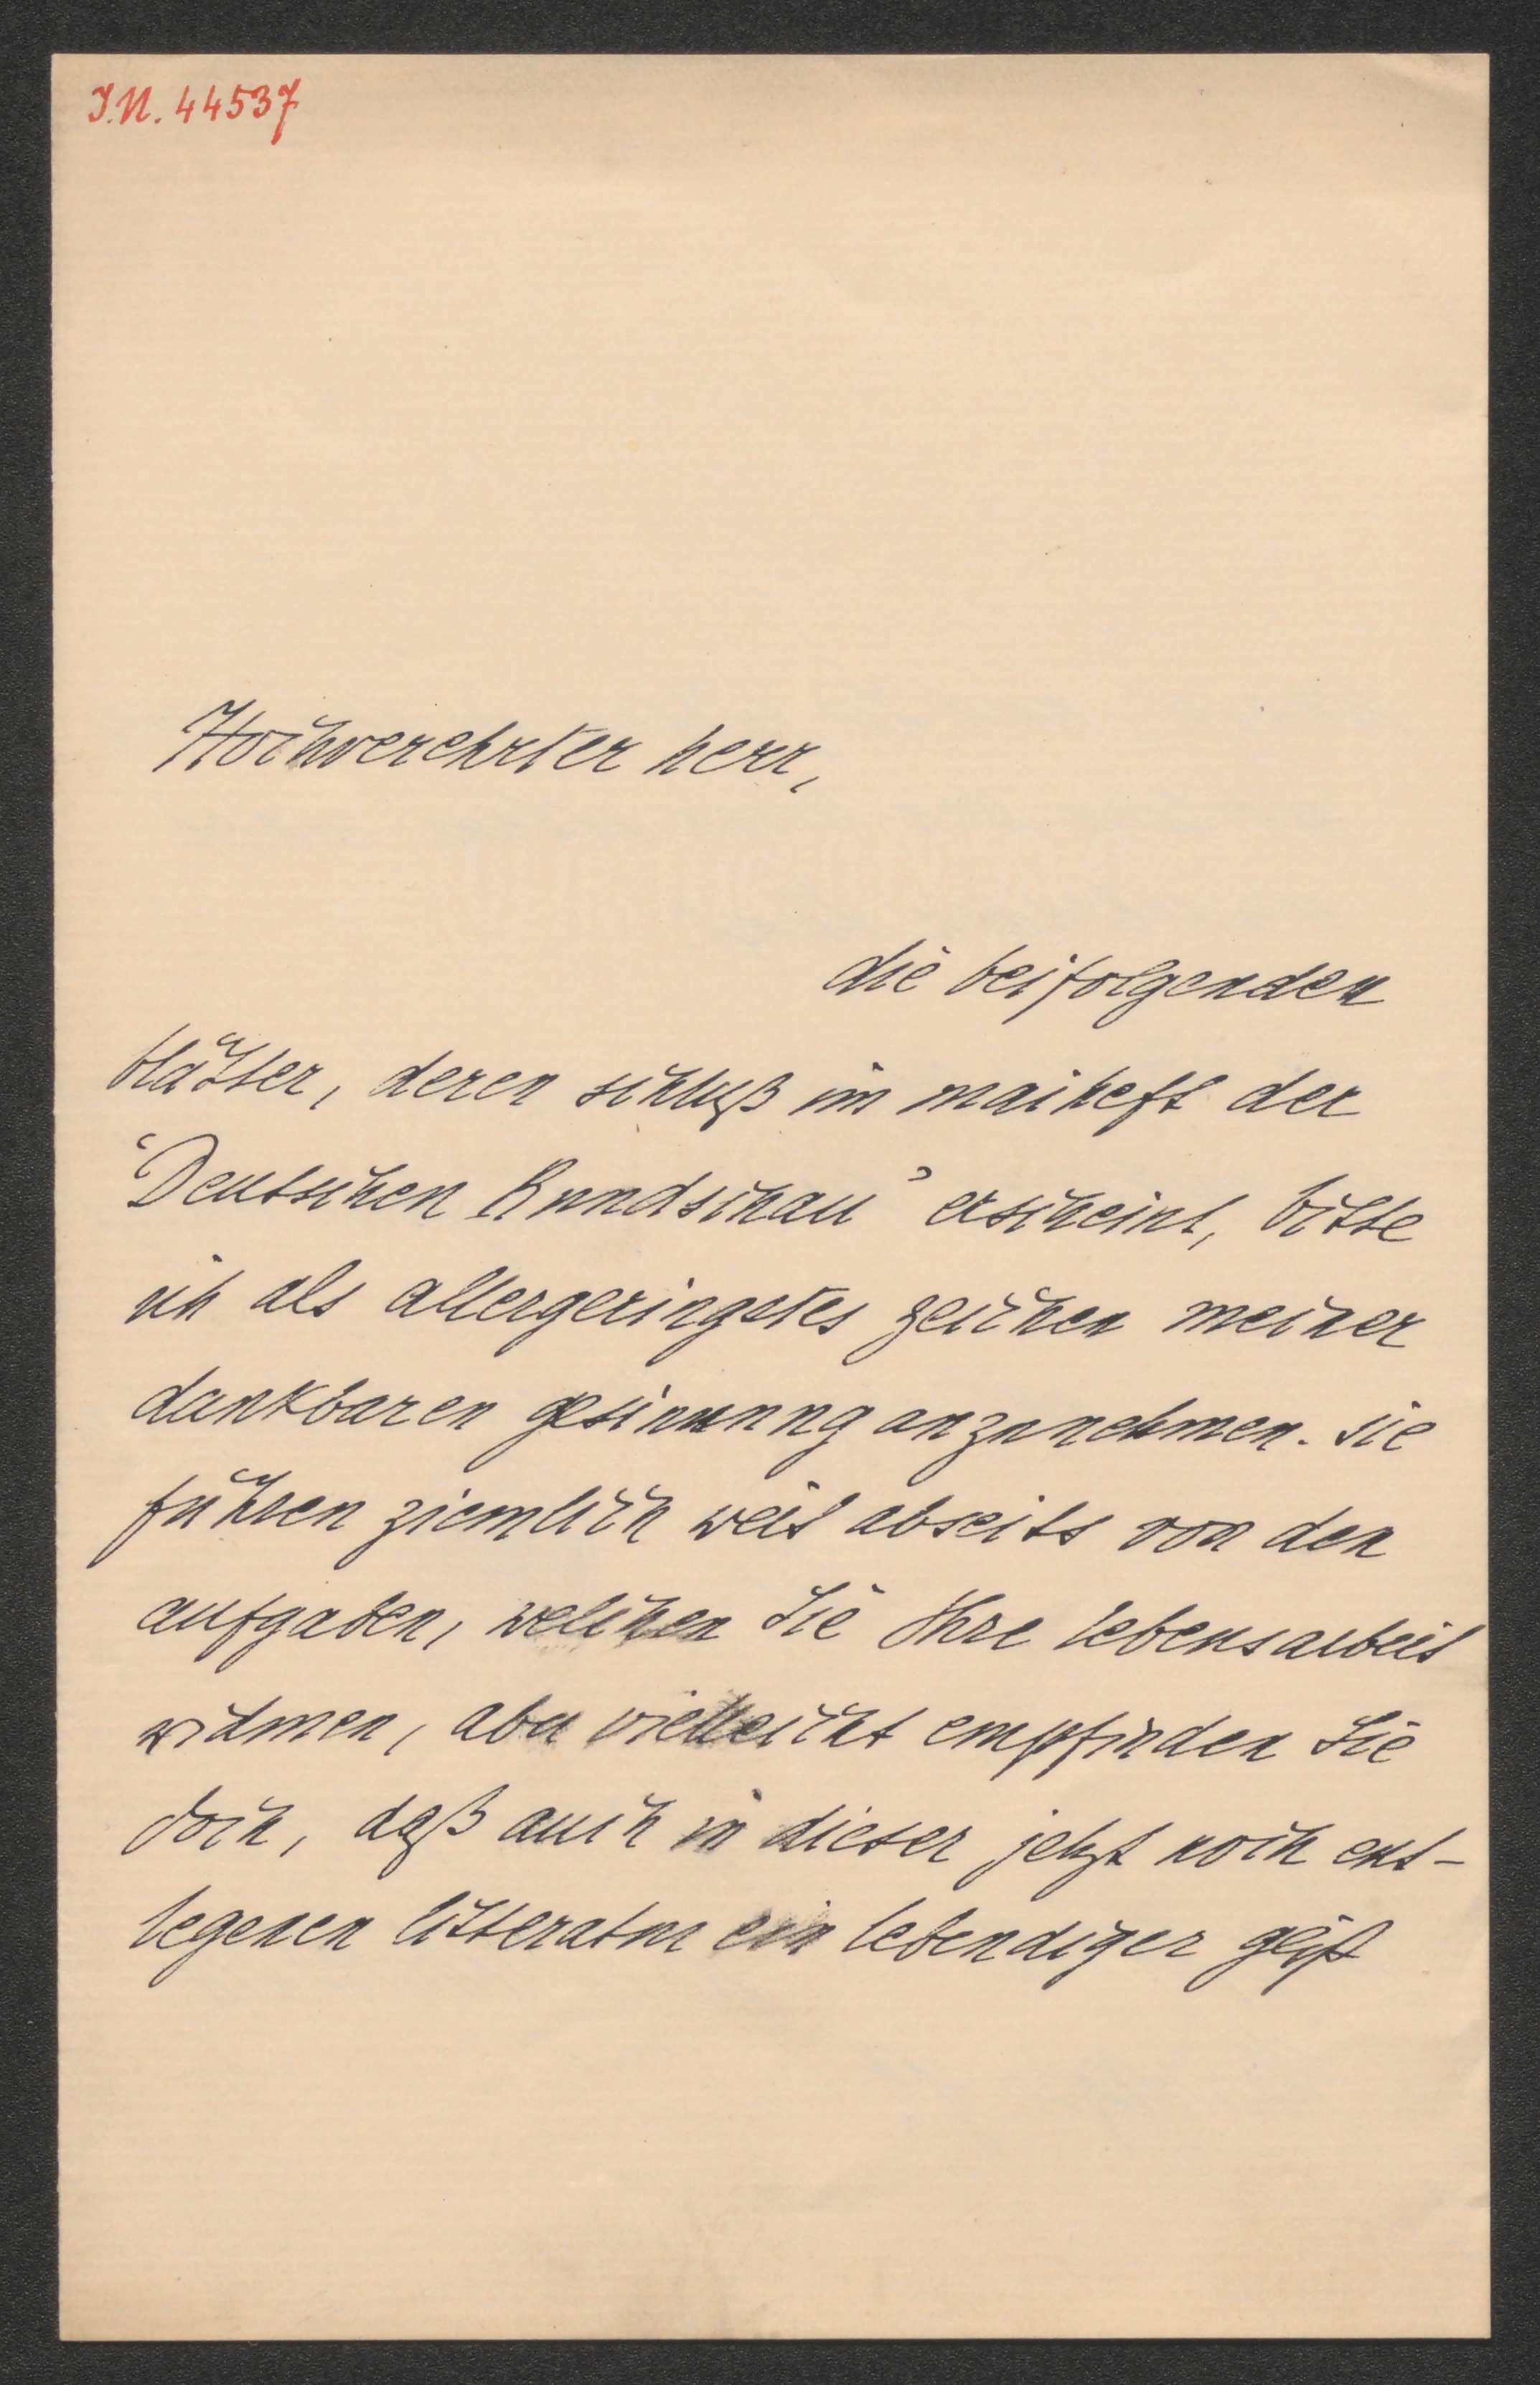 J.N. 44537
Hochverehrter herr,
die beifolgenden
blätter, deren schluß im maiheft der
"Deutschen Rundschau" erscheint, bitte
ich als allergeringstes zeichen meiner
dankbaren gesinnung anzunehmen. sie
führen ziemlich weit abseits von den
aufgaben, welchen Sie Ihre lebensarbeit
widmen, aber vielleicht empfinden Sie
doch, daß auch in dieser jetzt noch ent-
legenen litteratur ein lebendiger geist